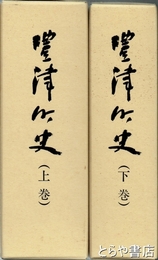 豐津町史
(上巻)
豐津町史
(下巻)
とらや書店